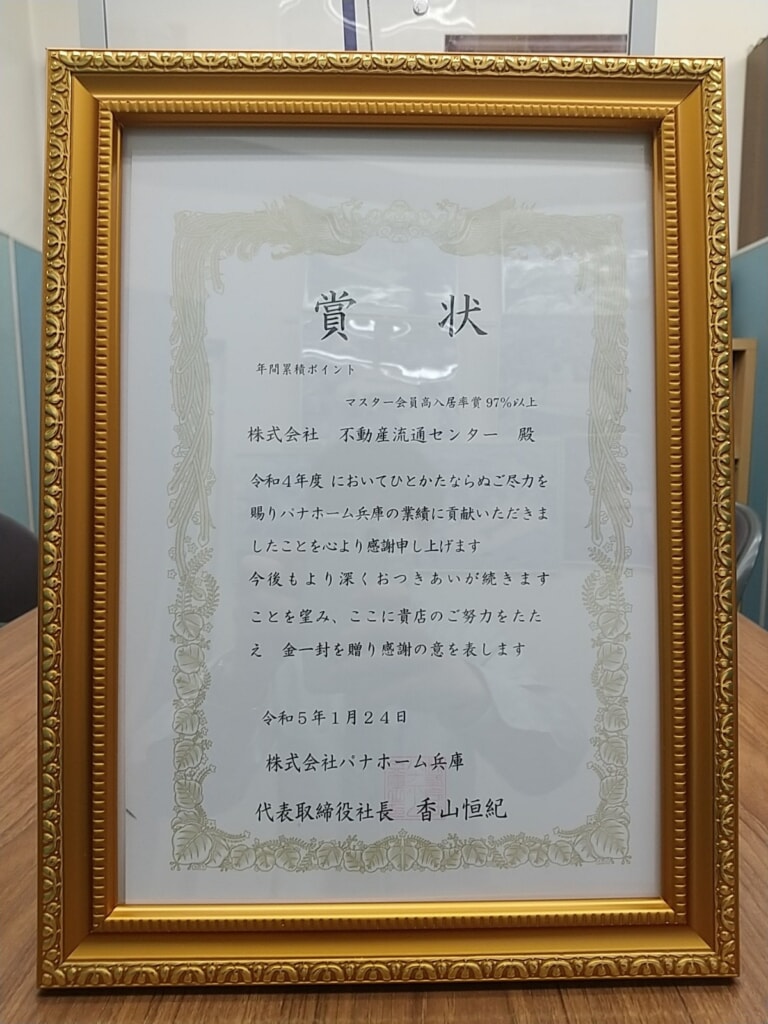 賞 状
年間累積ポイント
マスター会員高入居率賞97%以上
株式会社 不動産流通センター 殿
令和4年度 においてひとかたならぬご尽力を
賜りパナホーム兵庫の業績に貢献いただきま
したことを心より感謝申し上げます
今後もより深くおつきあいが続きます
ことを望み、ここに貴店のご努力をたた
え 金一封を贈り感謝の意を表します
令和5年1月24日
株式会社パナホーム兵庫
代表取締役社長 香山恒紀